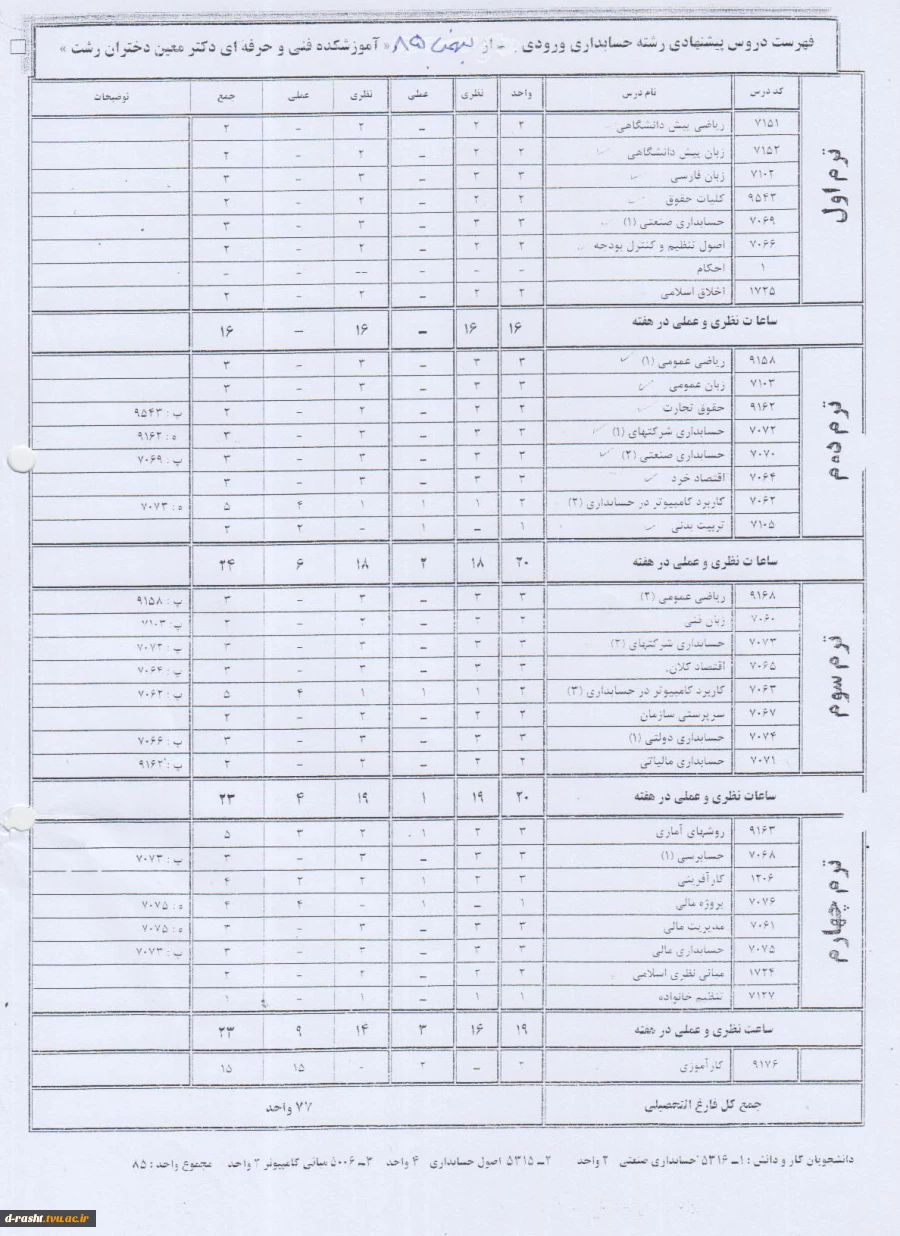 فهرست دروس پیشنهادی رشته حسابداری ورودی - از بهمن ۸۵ « آموزشکده فنی و حرفه ای دکتر معین دختران رشت »
کد درس نام درس واحد نظری عملی نظری عملی جمع توضیحات
ترم اول
۷۱۵۱ ریاضی پیش دانشگاهی ۲ ۲ - ۲ - ۲
۷۱۵۲ زبان پیش دانشگاهی ۲ ۲ - ۲ - ۲
۷۱۰۲ زبان فارسی ۳ ۳ - ۳ - ۳
۹۵۴۳ کلیات حقوق ۲ ۲ - ۲ - ۲
۷۰۶۹ حسابداری صنعتی (۱) ۳ ۳ - ۳ - ۳
۷۰۶۶ اصول تنظیم و کنترل بودجه ۲ ۲ - ۲ - ۲
۱ احکام - - - -- - -
۱۷۲۵ اخلاق اسلامی ۲ ۲ - ۲ - ۲
ساعات نظری و عملی در هفته ۱۶ ۱۶ - ۱۶ - ۱۶
ترم دوم
۹۱۵۸ ریاضی عمومی (۱) ۳ ۳ - ۳ - ۳
۷۱۰۳ زبان عمومی ۳ ۳ - ۳ - ۳
۹۱۶۲ حقوق تجارت ۲ ۲ - ۲ - ۲ پ : ۹۵۴۳
۷۰۷۲ حسابداری شرکتهای (۱) ۳ ۳ - ۳ - ۳ ه : ۹۱۶۲
۷۰۷۰ حسابداری صنعتی (۲) ۳ ۳ - ۳ - ۳ پ : ۷۰۶۹
۷۰۶۴ اقتصاد خرد ۳ ۳ - ۳ - ۳
۷۰۶۲ کاربرد کامپیوتر در حسابداری (۲) ۲ ۱ ۱ ۱ ۴ ۵ ه : ۷۰۷۳
۷۱۰۵ تربیت بدنی ۱ - ۱ - ۲ ۲
ساعات نظری و عملی در هفته ۲۰ ۱۸ ۲ ۱۸ ۶ ۲۴
ترم سوم
۹۱۶۸ ریاضی عمومی (۲) ۳ ۳ - ۳ - ۳ پ : ۹۱۵۸
۷۰۶۰ زبان فنی ۲ ۲ - ۲ - ۲ پ : ۷۱۰۳
۷۰۷۳ حسابداری شرکتهای (۲) ۳ ۳ - ۳ - ۳ پ : ۷۰۷۲
۷۰۶۵ اقتصاد کلان ۳ ۳ - ۳ - ۳ پ : ۷۰۶۴
۷۰۶۳ کاربرد کامپیوتر در حسابداری (۳) ۲ ۱ ۱ ۱ ۴ ۵ پ : ۷۰۶۲
۷۰۶۷ سرپرستی سازمان ۲ ۲ - ۲ - ۲
۷۰۷۴ حسابداری دولتی (۱) ۳ ۳ - ۳ - ۳ پ : ۷۰۶۶
۷۰۷۱ حسابداری مالیاتی ۲ ۲ - ۲ - ۲ پ : ۹۱۶۲
ساعات نظری و عملی در هفته ۲۰ ۱۹ ۱ ۱۹ ۴ ۲۳
ترم چهارم
۹۱۶۳ روشهای آماری ۳ ۲ ۱ ۲ ۳ ۵
۷۰۶۸ حسابرسی (۱) ۳ ۳ - ۳ - ۳ پ : ۷۰۷۳
۱۲۰۶ کارآفرینی ۳ ۲ ۱ ۲ ۲ ۴
۷۰۷۶ پروژه مالی ۱ - ۱ - ۴ ۴ ه : ۷۰۷۵
۷۰۶۱ مدیریت مالی ۳ ۳ - ۳ - ۳ ه : ۷۰۷۵
۷۰۷۵ حسابداری مالی ۳ ۳ - ۳ - ۳ پ : ۷۰۷۳
۱۷۲۴ مبانی نظری اسلامی ۲ ۲ - ۲ - ۲
۷۱۲۷ تنظیم خانواده ۱ ۱ - ۱ - ۱
ساعت نظری و عملی در هفته ۱۹ ۱۶ ۳ ۱۴ ۹ ۲۳
۹۱۷۶ کارآموزی ۲ - ۲ - ۱۵ ۱۵
جمع کل فارغ التحصیلی ۷۷ واحد
دانشجویان کار و دانش : ۱ـ ۵۳۱۶ حسابداری صنعتی ۲ واحد ۲ـ ۵۳۱۵ اصول حسابداری ۴ واحد ۳ـ ۵۰۰۶ مبانی کامپیوتر ۲ واحد مجموع واحد : ۸۵
d-rasht.tvu.ac.ir